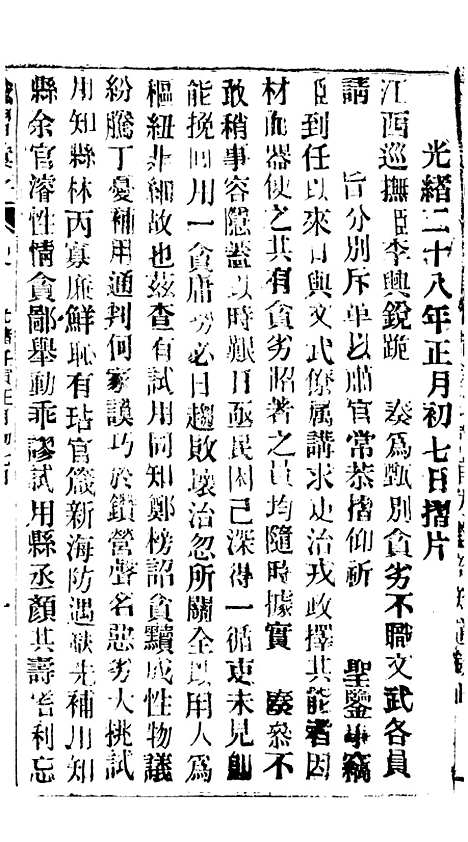 光緒二十八年正月初七日摺片
江西巡撫臣李興銳跪　奏爲甄別貪劣不職文武各員
請　旨分別斥革以肅官常恭摺仰祈　聖鑒事竊
臣到任以來日與文武僚属講求吏治戎政擇其能者因
材而器使之其有貪劣昭著之員均隨時據實　奏叅不
敢稍事容隱蓋以時艱日亟民困已深得一循吏未見卽
能挽囘用一貪庸勢必日趨敗壞治忽所關全以用人爲
樞紐非細故也茲查有試用同知鄭榜詔貪黷成性物議
紛騰丁憂補用通判何家謨巧於鑽營聲名惡劣大挑試
用知縣林丙寡廉鮮恥有玷官箴新海防遇缺先補用知
縣余官濬性情貪鄙舉動乖謬試用縣丞顏其壽嗜利忘